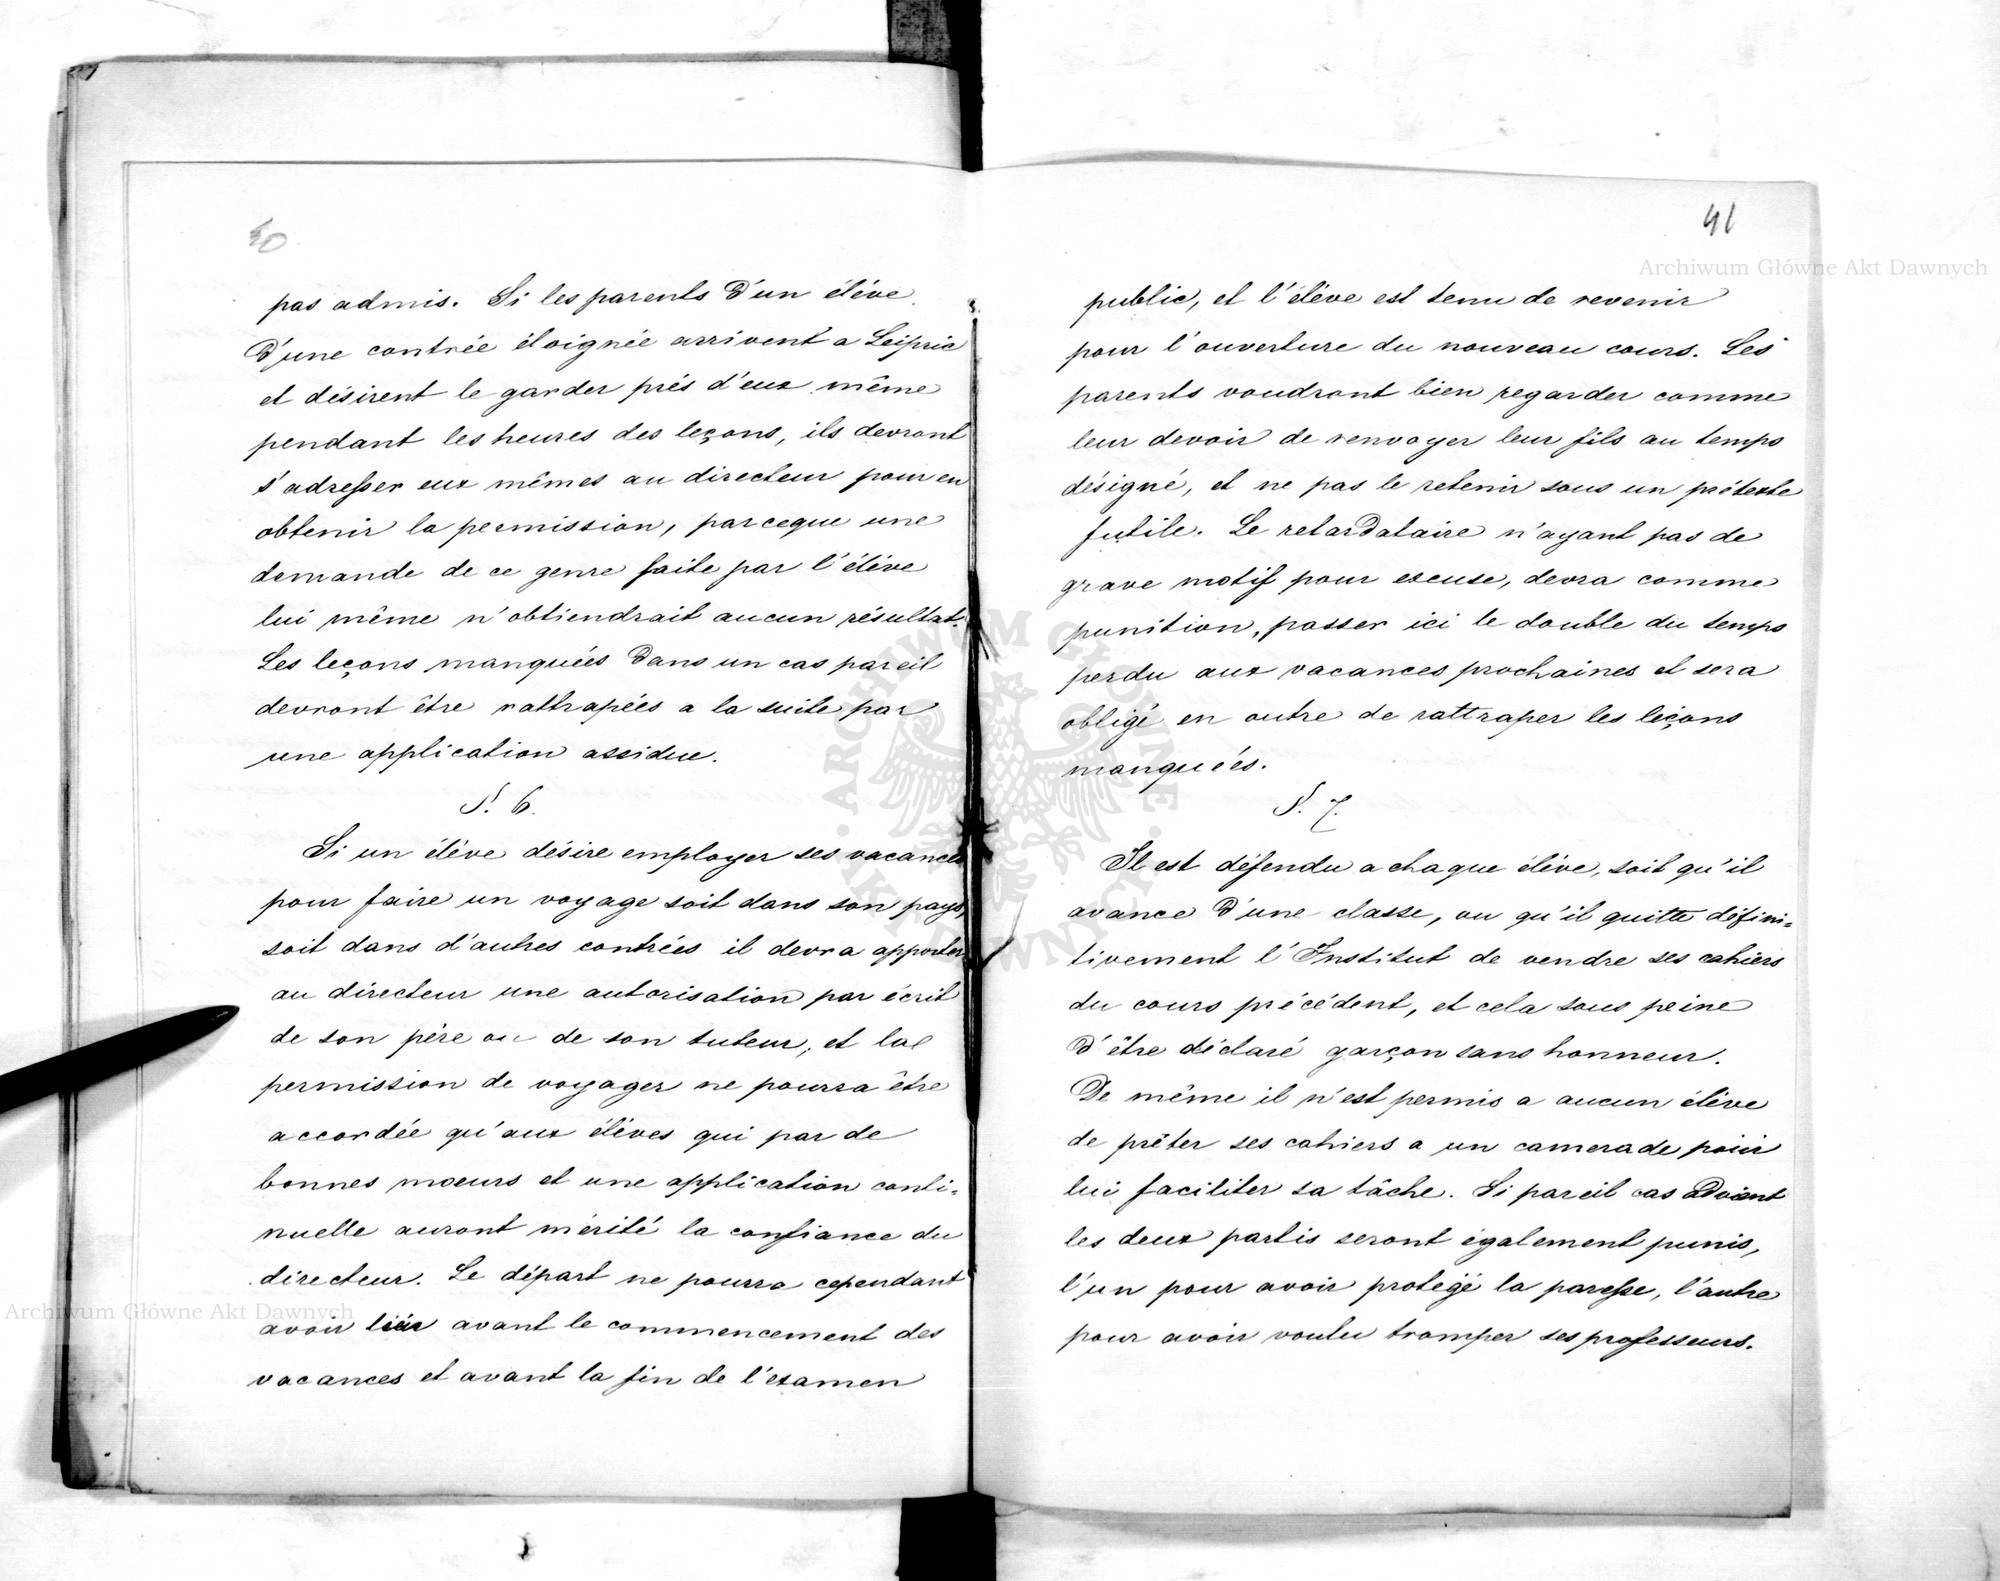 40
pas admis. Si les parents d'un élève
d'une contrée éloignée arrivent a Leipsic
et désirent le garder près d'eux même
pendant les heures des leçons, ils devront
s'adresser eux mêmes au directeur pour en
obtenir la permission, parceque une
demande de ce genre faite par l'élève
lui même n'obtiendrait aucun résultat.
Les leçons manquées dans un cas pareil
devront être rattrapées a la suite par
une application assidue.
§. 6.
Si un élève désire employer ses vacances
pour faire un voyage soit dans son pays,
soit dans d'autres contrées il devra apporter
au directeur une autorisation par écrit
de son père ou de son tuteur, et la
permission de voyager ne pourra être
accordée qu'aux élèves qui par de
bonnes moeurs et une application conti-
nuelle auront mérité la confiance du
directeur. Le départ ne pourra cependant
avoir lieu avant le commencement des
vacances et avant la fin de l'examen
41
public, et l'élève est tenu de revenir
pour l'ouverture du nouveau cours. Les
parents voudront bien regarder comme
leur devoir de renvoyer leur fils au temps
désigné, et ne pas le retenir sous un prétexte
futile. Le retardataire n'ayant pas de
grave motif pour excuse, devra comme
punition, passer ici le double du temps
perdu aux vacances prochaines et sera
obligé en outre de rattraper les leçons
manquées.
§. 7.
Il est défendu a chaque élève, soit qu'il
avance d'une classe, ou qu'il quitte défini=
tivement l'Institut de vendre ses cahiers
du cours précédent, et cela sous peine
d'être déclaré garçon sans honneur.
De même il n'est permis a aucun élève
de prêter ses cahiers a un camerade pour
lui faciliter sa tâche. Si pareil cas advient
les deux partis seront également punis,
l'un pour avoir protégé la paresse, l'autre
pour avoir voulu tromper ses professeurs.
Archiwum Główne Akt Dawnych
Archiwum Główne Akt Dawnych
ARCHIWUM GŁÓWNE AKT DAWNYCH